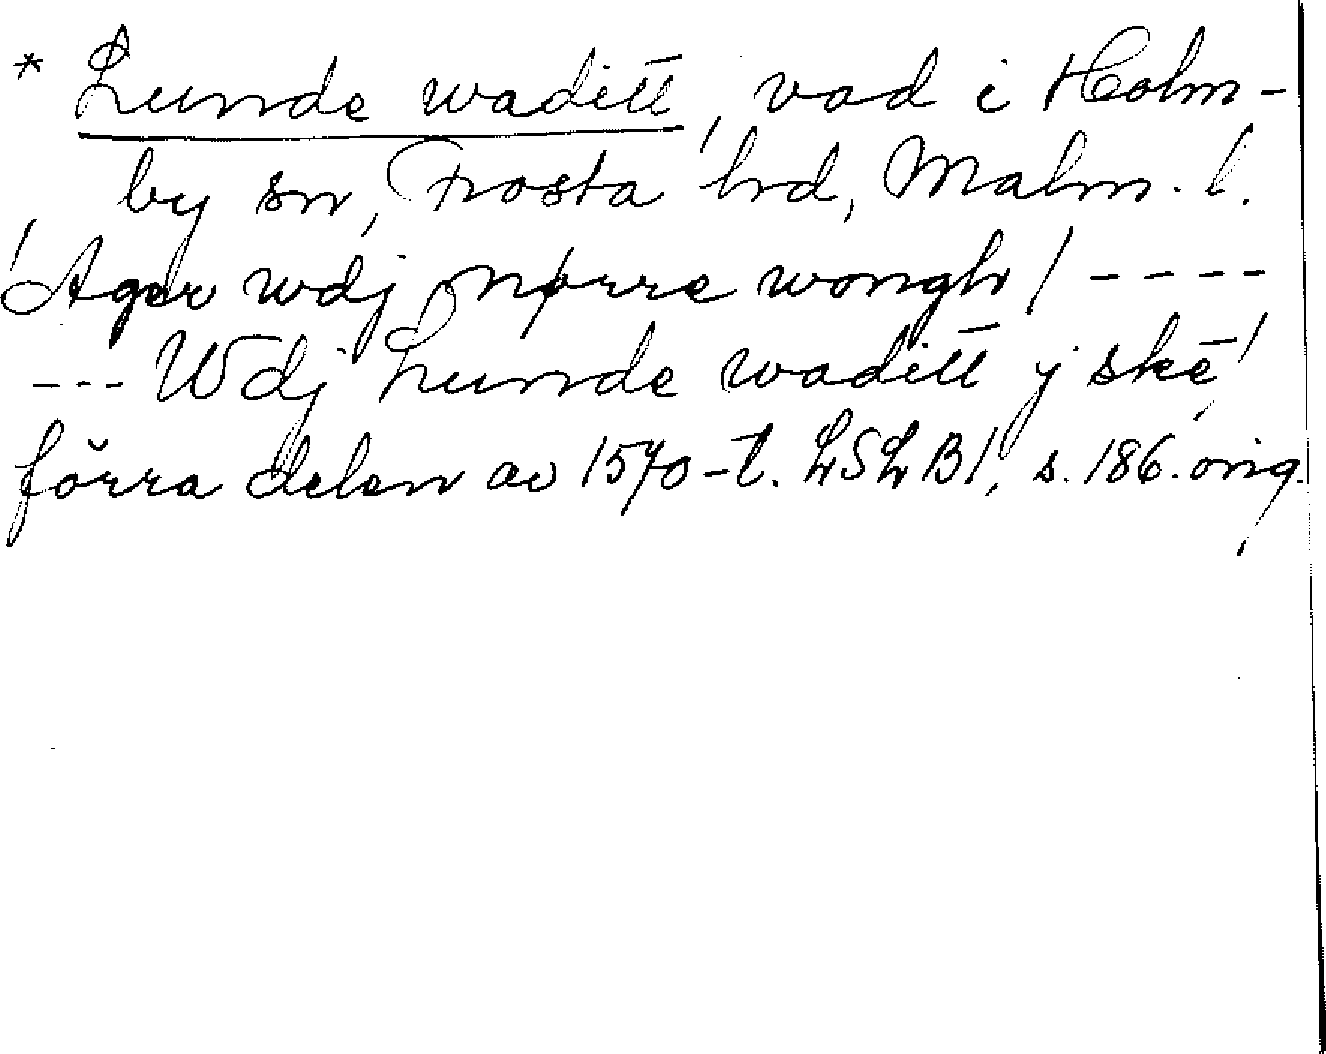 * Lunde waditt, vad i Holm-
by sn, Frosta hrd, Malm. l.
'Ager wdj nørre wongh / ----
--- Wdj Lunde waditt y ske'
förra delen av 1570-t. LSLB1, s. 186. orig.